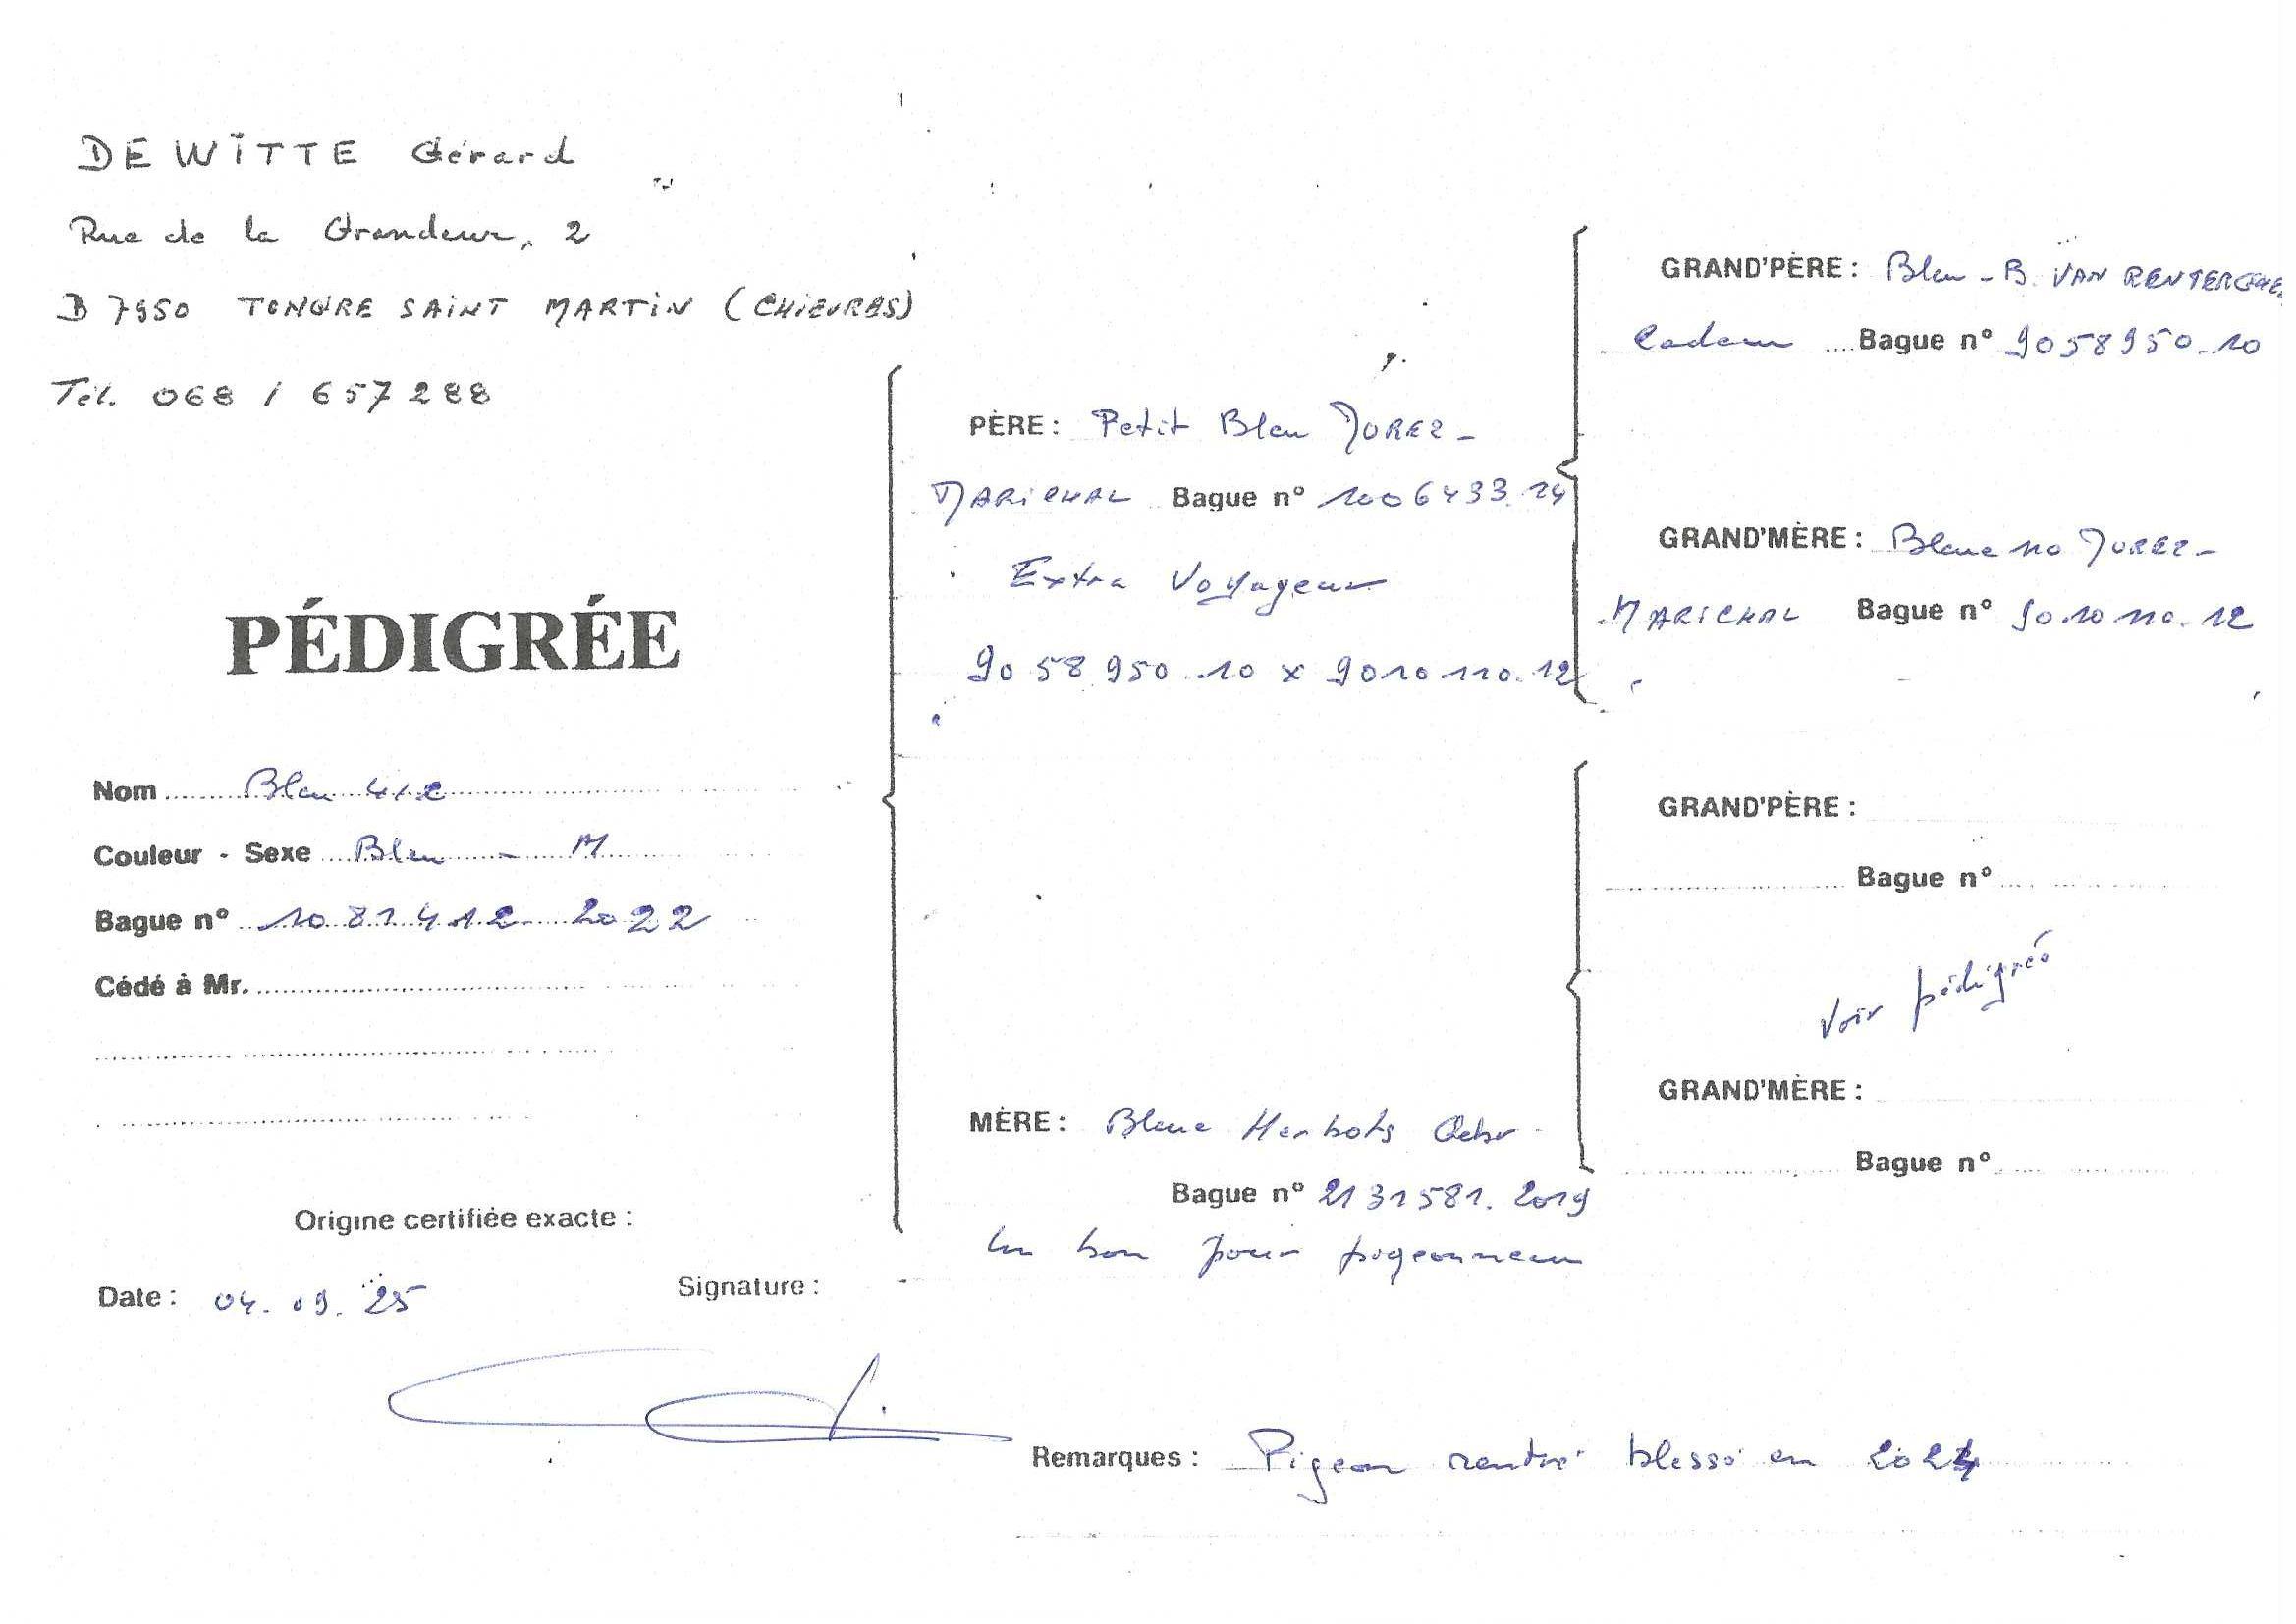 DE WITTE Gérard
Rue de la Grandeur, 2
B 7950 TONGRE SAINT MARTIN (CHIEVRES)
Tél. 068 / 657288
PÉDIGRÉE
Nom Bleu 412
Couleur - Sexe Bleu - M
Bague n° 1081412 2022
Cédé à Mr.
Origine certifiée exacte :
Date : 04.09.25
Signature :
PÈRE : Petit Bleu JUREZ -
MARICHAL Bague n° 1006433.14
Extra Voyageur
9058950.10 x 9010110.12
MÈRE : Bleue Herbots
Bague n° 2131581.2019
bon pour pigeonneau
GRAND'PÈRE : Bleu - B. VAN
Cadeau Bague n° 9058950.10
GRAND'MÈRE : Bleue 110 JUREZ -
MARICHAL Bague n° 9010110.12
GRAND'PÈRE :
Bague n°
Voir pédigrée
GRAND'MÈRE :
Bague n°
Remarques : Pigeon rentré blessé en 2024